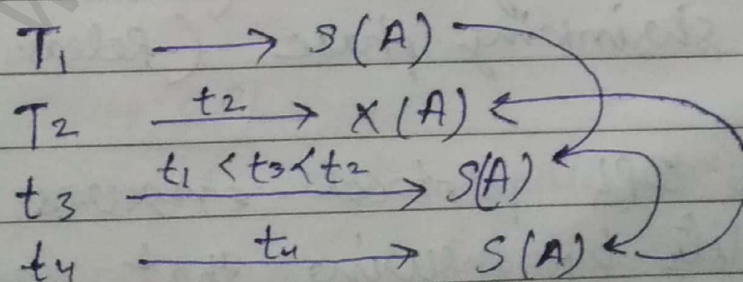 T₁ → S(A)
T₂ t₂ → X(A)
t₃ t₁ < t₃ < t₂ → S(A)
t₄ t₄ → S(A)